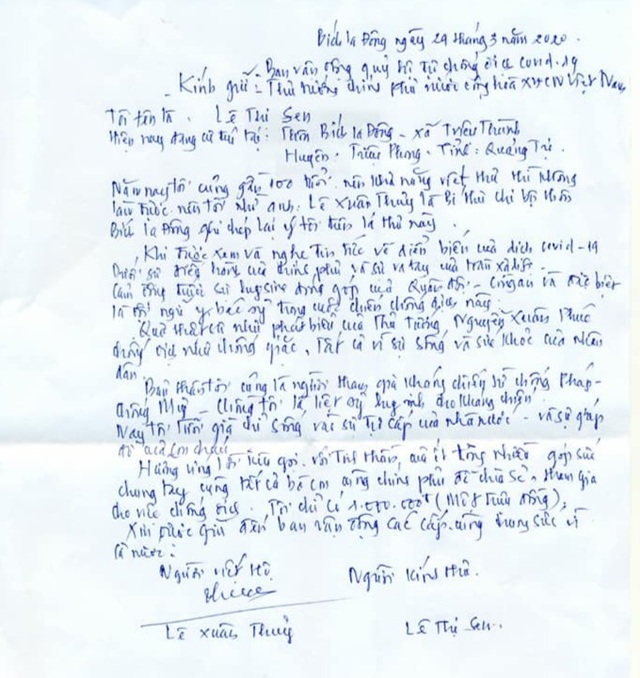 Bích la Đông ngày 29 tháng 3 năm 2020.
Ban vận động quỹ hỗ trợ chống dịch covid-19
- Kính gửi: Thủ tướng chính phủ nước cộng hòa XHCN Việt Nam
Tôi tên là: Lê Thị Sen
Hiện nay đang cư trú tại: Thôn Bích la Đông - xã Triệu Thành
Huyện: Triệu Phong. Tỉnh: Quảng Trị.
Năm nay tôi cũng gần 100 tuổi. nên khả năng viết thư thì không
làm được nên tôi nhờ anh: Lê Xuân Thủy là Bí thư chi bộ thôn
Bích la Đông ghi chép lại ý tôi lá thư này.
Khi được xem và nghe tin tức về diễn biến của dịch covid-19
sự điều hành của chính phủ và sự ra tay của toàn xã hội.
đóng góp của Quân đội - công an và đặc biệt
là đội ngũ y bác sỹ trong cuộc chiến chống dịch này.
Quả thật là như phát biểu của Thủ tướng, Nguyễn Xuân Phúc
chống dịch như chống giặc, Tất cả vì sự sống và sức khỏe của nhân
dân
Bản thân tôi cũng là người tham gia kháng chiến chống Pháp -
chống Mỹ - chồng tôi là liệt sỹ hy sinh cho kháng chiến
Nay tôi tuổi già chỉ sống vào sự trợ cấp của nhà nước - và sự giúp
đỡ của con cháu
Hưởng ứng lời kêu gọi. với tinh thần, của ít lòng nhiều góp sức
chung tay cùng tất cả bà con cùng chính phủ để chia sẻ, tham gia
cho việc chống dịch. Tôi chỉ có 1.000.000đ (Một triệu đồng),
Xin được gửi đến ban vận động các cấp. cùng chung sức vì
cả nước.
Người viết hộ Người kính thư.
Lê Xuân Thủy Lê Thị Sen.